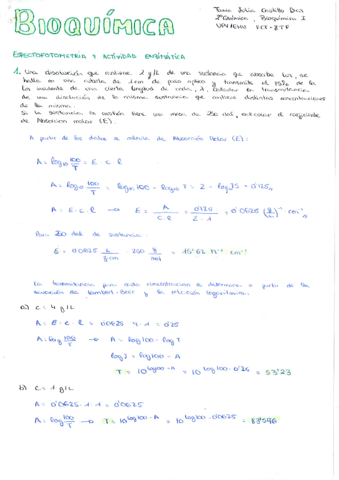 BIOQUÍMICA
2º Química, Bioquímica I
UPV/EHU FCT-ZTF
ESPECTOFOTOMETRIA Y ACTIVIDAD ENZIMÁTICA
1. Una disolución que contiene 2 g/L de una sustancia que absorbe luz, se
halla en una cubeta de 1cm de paso óptico y transmite el 75% de la
luz incidente de una cierta longitud de onda, λ. Calcular la transmitancia
de una disolución de la misma sustancia que contiene distintas concentraciones
de la misma.
Si la sustancia en cuestión tiene una masa de 250 dal, calcular el coeficiente
de Absorción molar (E).
A partir de los datos a calcular de Absorción Molar (E):
A = log10 100/T = E · c · l
A = log10 100/T = log10 100 - log10 T = 2 - log 75 = 0'125
A = E · c · l → E = A/C·l = 0'125/2·1 = 0'0625 (g/L)⁻¹ cm⁻¹
Para 250 dal de sustancia:
E = 0'0625 L/g·cm · 250 g/mol = 15'62 M⁻¹ cm⁻¹
La transmitancia para cada concentración se determina a partir de la
ecuación de Lambert-Beer y la relación logarítmica:
a) c = 4 g/L
A = E · c · l = 0'0625 · 4 · 1 = 0'25
A = log 100/T → A = log 100 - log T
log T = log 100 - A
T = 10^log100-A = 10^log100-0'25 = 53'23
b) c = 1 g/L
A = 0'0625 · 1 · 1 = 0'0625
A = log 100/T → T = 10^log100-A = 10^log100-0'0625 = 83'596